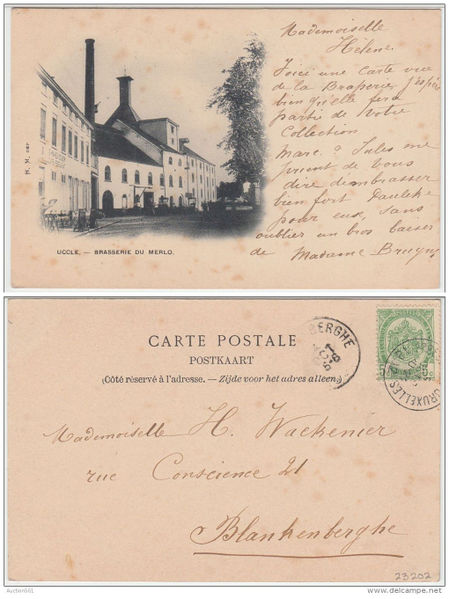 Mademoiselle
Hélène.
Voici une carte vue
de la Brasserie, j'espère
bien qu'elle fera
partie de votre
Collection
Marc & Jules me
prient de vous
dire d'embrasser
bien fort
pour eux, sans
oublier un gros baiser
de Madame
N. N. 227
UCCLE. — BRASSERIE DU MERLO.
CARTE POSTALE
POSTKAART
(Côté réservé à l'adresse. — Zijde voor het adres alleen)
BERGHE
BRUXELLES
Mademoiselle H. Wackenier
rue Conscience 21
Blankenberghe
23202
Acter661
delcampe.net